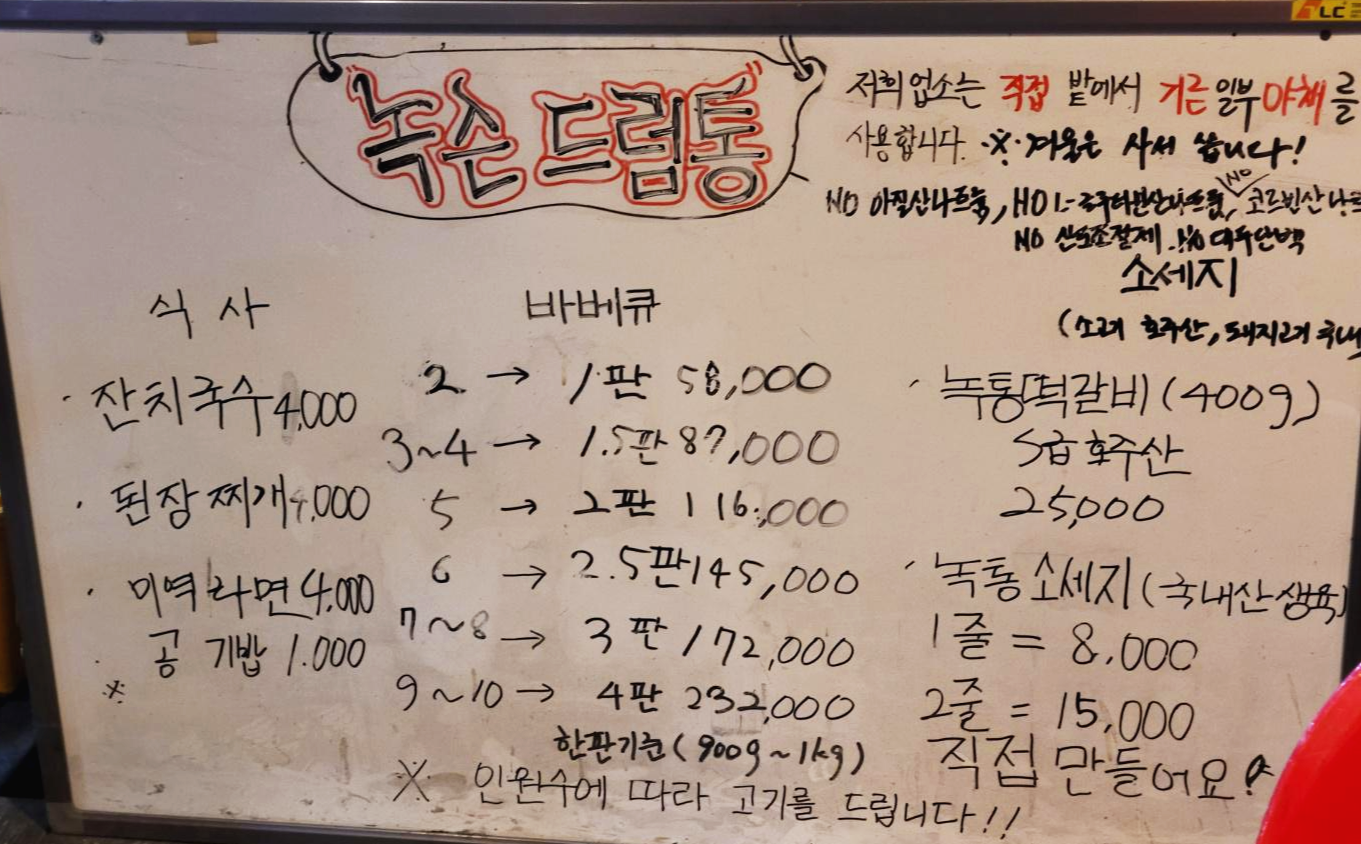 LC
"녹슨 드럼통"
저희 업소는 직접 밭에서 기른 일부 야채를
사용합니다. ※ 겨울은 사서 씁니다!
NO 아질산나트륨, NO L-글루타민산나트륨, NO 코르빈산나트
NO 산도조절제. NO 대두단백
소세지
(소고기 호주산, 돼지고기 국내
식사
· 잔치국수 4,000
· 된장찌개 4,000
· 미역라면 4,000
공기밥 1.000
※
바베큐
2 → 1판 58,000
3~4 → 1.5판 87,000
5 → 2판 116,000
6 → 2.5판 145,000
7~8 → 3판 172,000
9~10 → 4판 232,000
한판기준 (900g~1kg)
※ 인원수에 따라 고기를 드립니다!!
· 녹통떡갈비 (400g)
S급 호주산
25,000
· 녹통소세지 (국내산생육)
1줄 = 8,000
2줄 = 15,000
직접 만들어요!